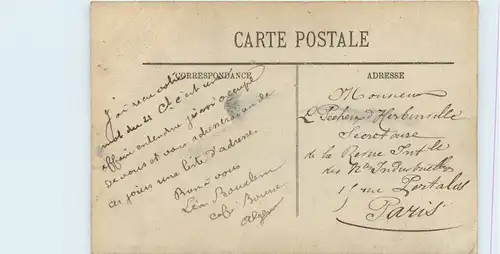 CARTE POSTALE
CORRESPONDANCE
J'ai reçu votre
mot du 21 Ct. c'est une
affaire entendue je vais m'occuper
de vous et vous adresserai un de
ces jours une liste d'adresses.
Bien à vous
Léon
café Bourse
Alger
ADRESSE
Monsieur
L. d'Herbinville
Secrétaire
de la Revue Intle
des Industrielles
15 rue
Paris